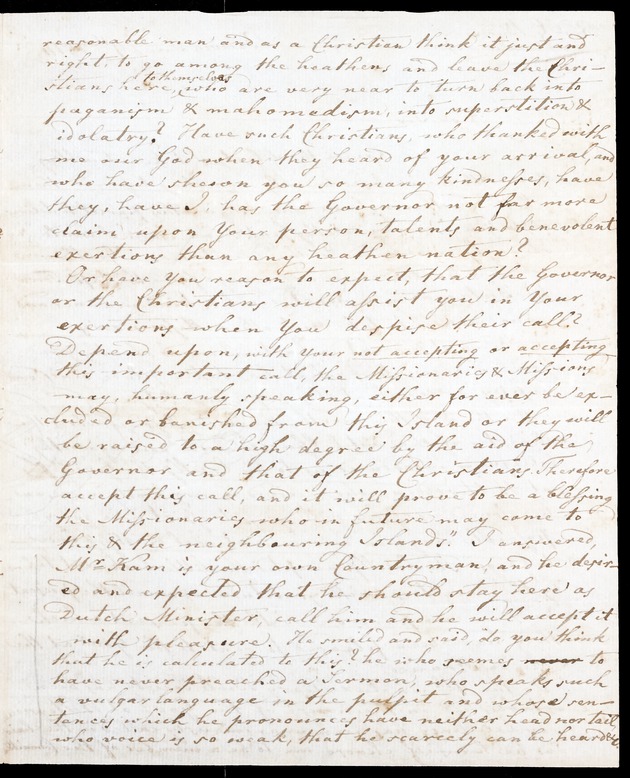 reasonable man and as a Christian think it just and
right to go among the heathens and leave the Chri-
stians here, to themselves who are very near to turn back into
paganism & mahomadism, into superstition &
idolatry? Have such Christians, who thanked with
me our God when they heard of your arrival, and
who have shewn you so many kindnesses, have
they, have I, has the Governor not far more
claim upon Your person, talents and benevolent
exertions than any heathen nation?
Or have you reason to expect, that the Governor
or the Christians will assist you in Your
exertions when You despise their call?
Depend upon, with your not accepting or accepting
this important call, the Missionaries & Missions
may, humanly speaking, either for ever be ex-
cluded or banished from this Island or they will
be raised to a high degree by the aid of the
Governor and that of the Christians. Therefore
accept this call, and it will prove to be a blessing
the Missionaries who in future may come to
this & the neighbouring Islands." I answered,
Mr. Kam is your own Countryman, and he desir-
ed and expected that he should stay here as
Dutch Minister, call him and he will accept it
with pleasure. He smiled and said, do you think
that he is calculated to this? he who seemes never to
have never preached a Sermon, who speaks such
a vulgar language in the pulpit and whose sen-
tances which he pronounces have neither head nor tail
who voice is so weak, that he scarcely can be heard &c.